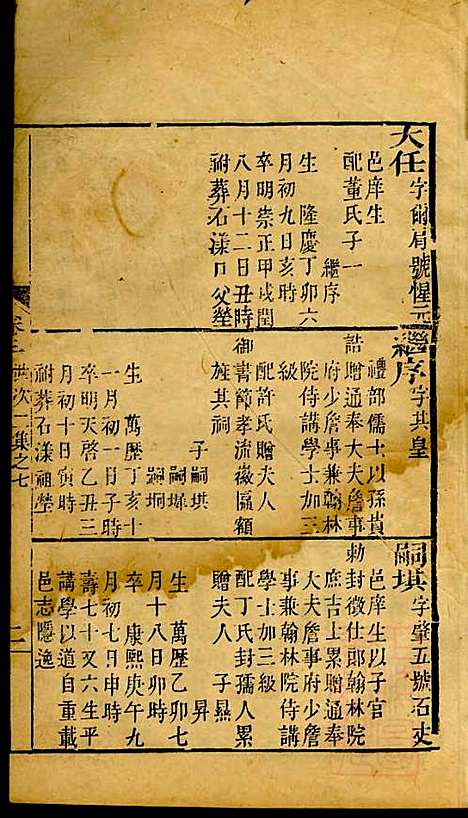 大任字爾肩號惺元
邑庠生
配董氏子一
繼序
生 隆慶丁卯六
月初九日亥時
卒明崇正甲戌閏
八月十二日丑時
祔葬石漾口父塋
繼序字其皇
禮部儒士以孫貴
誥贈通奉大夫詹事
府少詹事兼翰林
院侍講學士加三
級
配許氏贈夫人
御書節孝流徽匾額
旌其祠
子嗣埱
嗣墀
嗣垌
生 萬歷丁亥十
一月初一日子時
卒明天啓乙丑三
月初十日寅時
祔葬石漾祖塋
嗣埱字肇五號石史
邑庠生以子官
勅封徵仕郎翰林院
庶吉士累贈通奉
大夫詹事府少詹
事兼翰林院侍講
學士加三級
配丁氏封孺人累
贈夫人 子㬎
昇
生 萬歷乙卯七
月十八日卯時
卒 康熙庚午九
月初七日申時
壽七十又六生平
講學以道自重載
邑志隱逸
卷三 世次一集之七
二